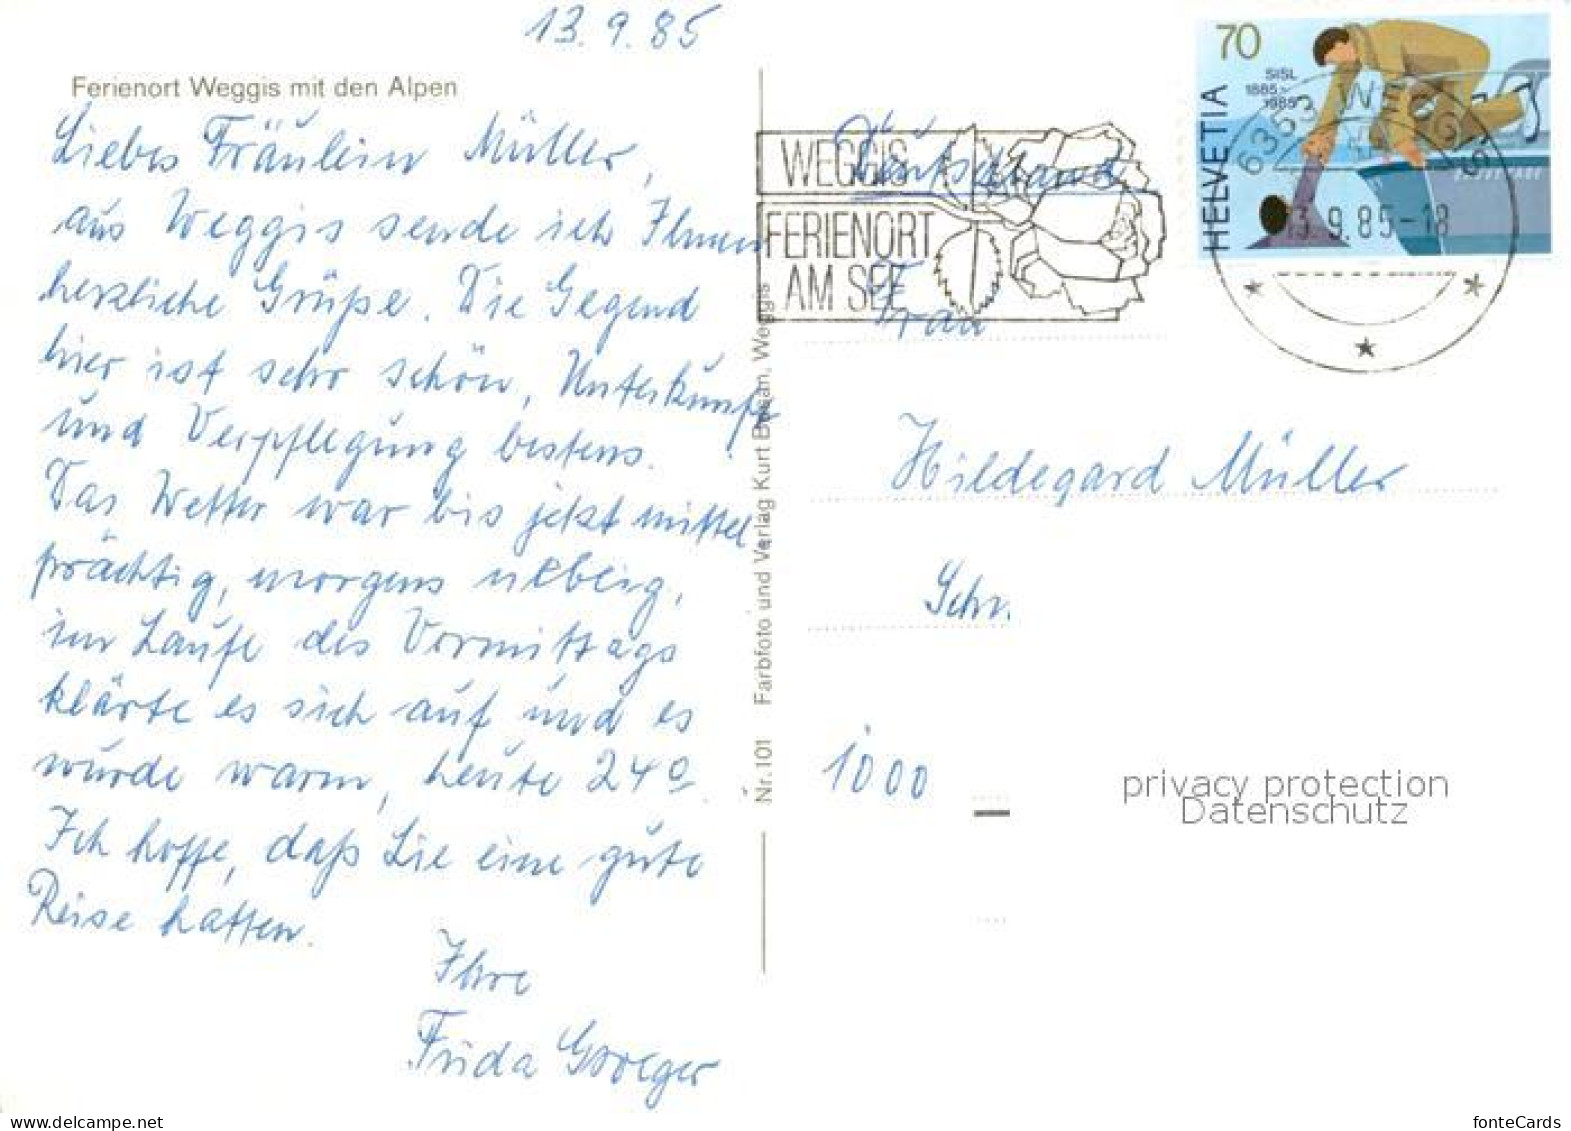 13.9.85
Ferienort Weggis mit den Alpen
Liebes Fräulein Müller,
aus Weggis sende ich Ihnen
herzliche Grüße. Die Gegend
hier ist sehr schön, Unterkunft
und Verpflegung bestens.
Das Wetter war bis jetzt mittel
prächtig, morgens neblig,
im Laufe des Vormittags
klärte es sich auf und es
wurde warm, heute 24º.
Ich hoffe, daß Sie eine gute
Reise hatten.
Ihre
Frida
Nr. 101 Farbfoto und Verlag Kurt Bösan, Weggis
WEGGIS
FERIENORT
AM SEE
Deutschland
70
SISL
1885-
1985
HELVETIA
6353 WEGGIS
13.9.85-18
Frau
Hildegard Müller
1000
privacy protection
Datenschutz
www.delcampe.net
fonteCards